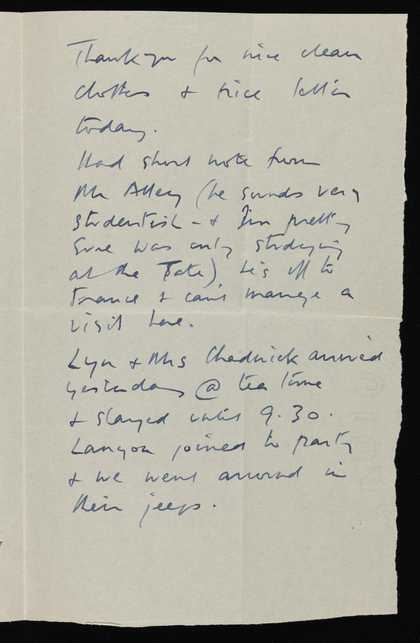 Thankyou for nice clean
clothes & nice letter
today.
Had short note from
Mr Alley (he sounds very
studentish - & I'm pretty
sure was only studying
at the Tate) he's off to
France & can't manage a
visit here.
Lyn & Mrs Chadwick arrived
yesterday @ tea time
& stayed until 9.30.
Lanyon joined to party
& we went around in
their jeeps.